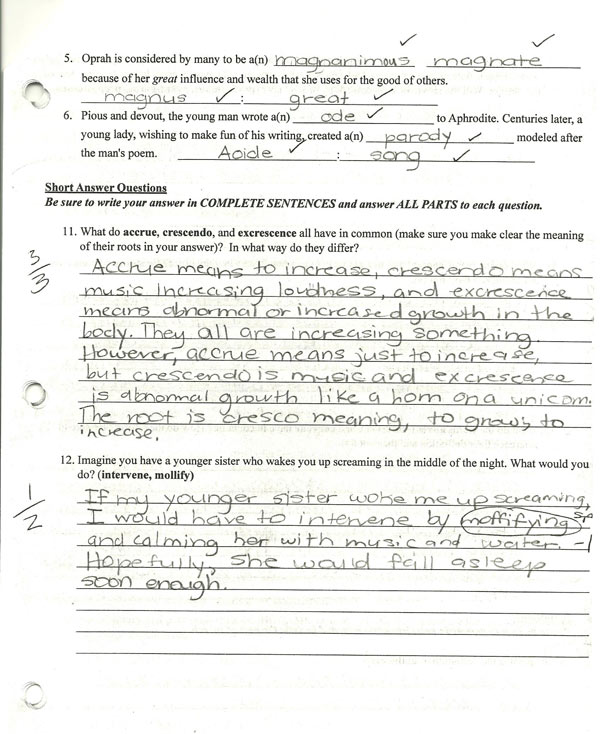 5. Oprah is considered by many to be a(n) magnanimous magnate
because of her great influence and wealth that she uses for the good of others.
magnus : great
6. Pious and devout, the young man wrote a(n) ode to Aphrodite. Centuries later, a
young lady, wishing to make fun of his writing, created a(n) parody modeled after
the man's poem. Aoide : song
Short Answer Questions
Be sure to write your answer in COMPLETE SENTENCES and answer ALL PARTS to each question.
11. What do accrue, crescendo, and excrescence all have in common (make sure you make clear the meaning
of their roots in your answer)? In what way do they differ?
3/3
Accrue means to increase, crescendo means
music increasing loudness, and excrescence
means abnormal or increased growth in the
body. They all are increasing something.
However, accrue means just to increase,
but crescendo is music and excrescence
is abnormal growth like a horn on a unicorn.
The root is cresco meaning, to grow; to
increase.
12. Imagine you have a younger sister who wakes you up screaming in the middle of the night. What would you
do? (intervene, mollify)
1/2
If my younger sister woke me up screaming,
I would have to intervene by moffifying sp
and calming her with music and water. -1
Hopefully, she would fall asleep
soon enough.